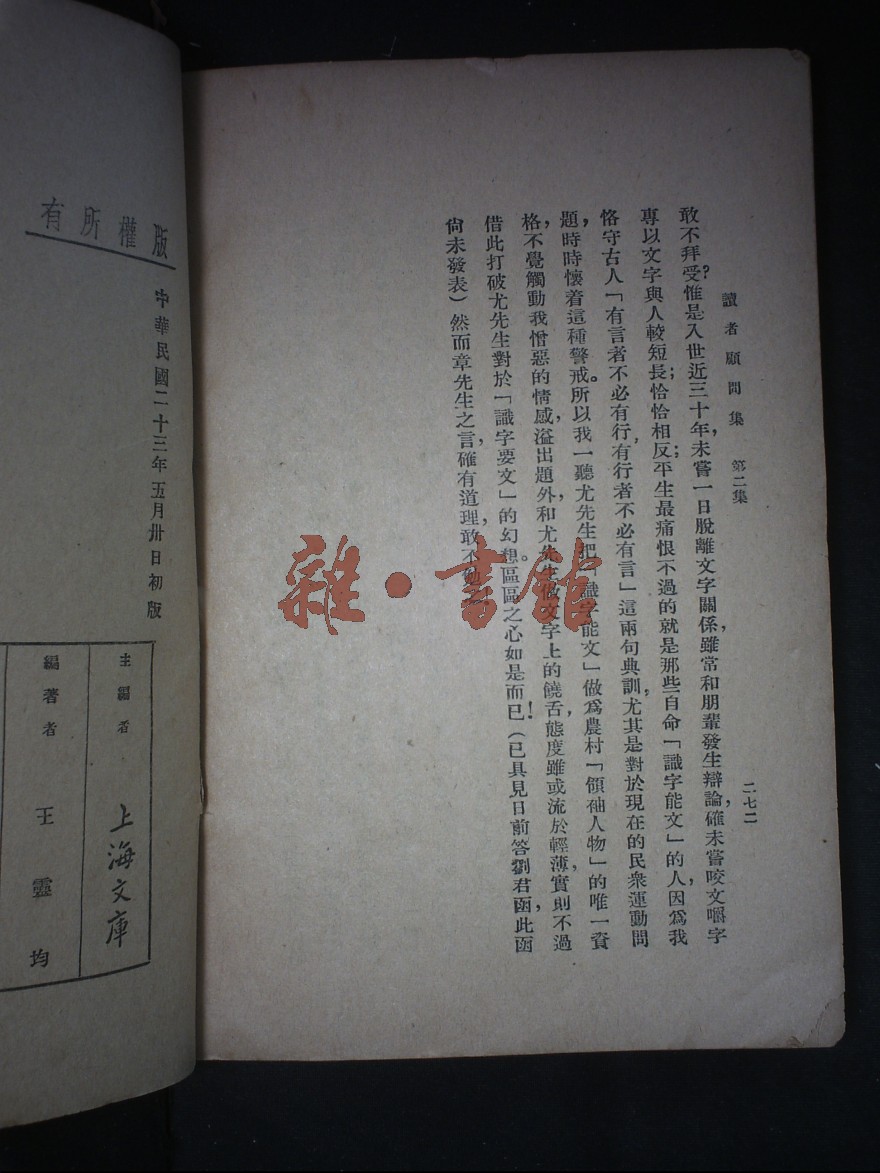 讀者顧問集　第二集
二七二
敢不拜受？惟是入世近三十年，未嘗一日脫離文字關係，雖常和朋輩發生辯論，確未嘗咬文嚼字
專以文字與人較短長；恰恰相反；平生最痛恨不過的就是那些自命「識字能文」的人，因爲我
恪守古人「有言者不必有行，有行者不必有言」這兩句典訓，尤其是對於現在的民衆運動問
題，時時懷着這種警戒。所以我一聽尤先生把「識字能文」做爲農村「領袖人物」的唯一資
格，不覺觸動我憎惡的情感，溢出題外，和尤先生做文字上的饒舌，態度雖或流於輕薄，實則不過
借此打破尤先生對於「識字要文」的幻想。區區之心如是而已！（已具見日前答劉君函，此函
尙未發表）然而章先生之言，確有道理，敢不勉
雜·書館
版權所有
中華民國二十三年五月卅日初版
主編者　上海文庫
編著者　王靈均